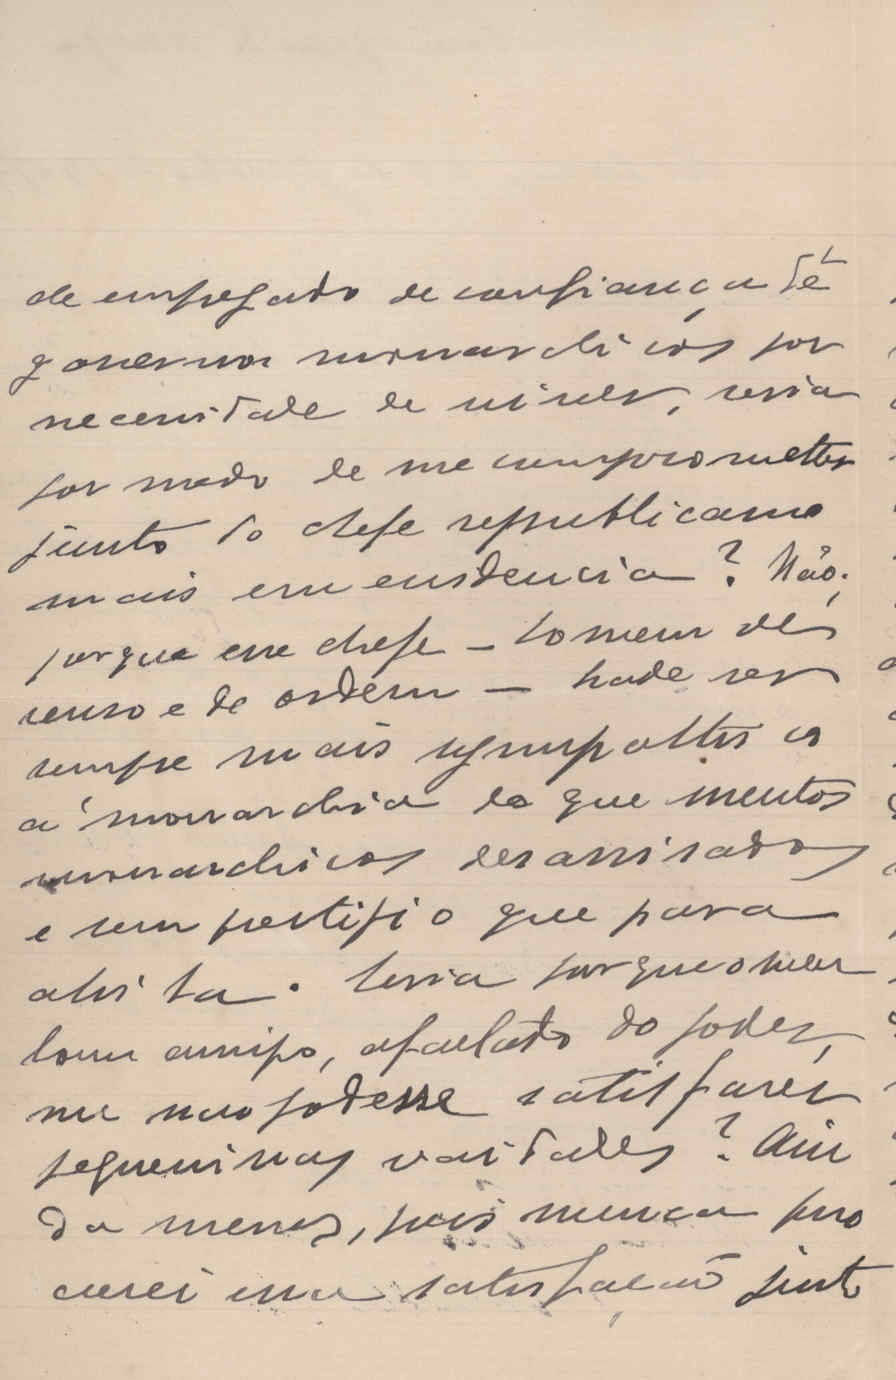 de empregado de confiança de
governos monarchicos por
necessidade de viver, seria
por medo de me comprometter
junto do chefe republicano
mais em evidencia? Não;
porque esse chefe — homem de
senso e de ordem — hade ser
sempre mais sympathico
á monarchia do que muitos
monarchicos desassisados
e sem prestigio que para
ahi ha. Seria porque o meu
bom amigo, afastado do poder,
me não podesse satisfazer
pequeninas vaidades? Ain
da menos, pois nunca pro
curei essa satisfação junto